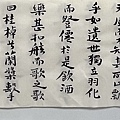 不知其所止
乎如遺世獨立羽化
而登僊於是飲酒
樂甚扣舷而歌之歌
曰桂棹兮蘭槳擊